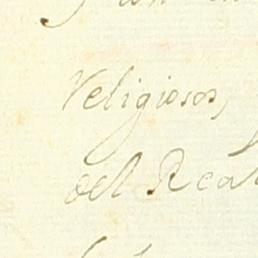 Religiosos,
del Real